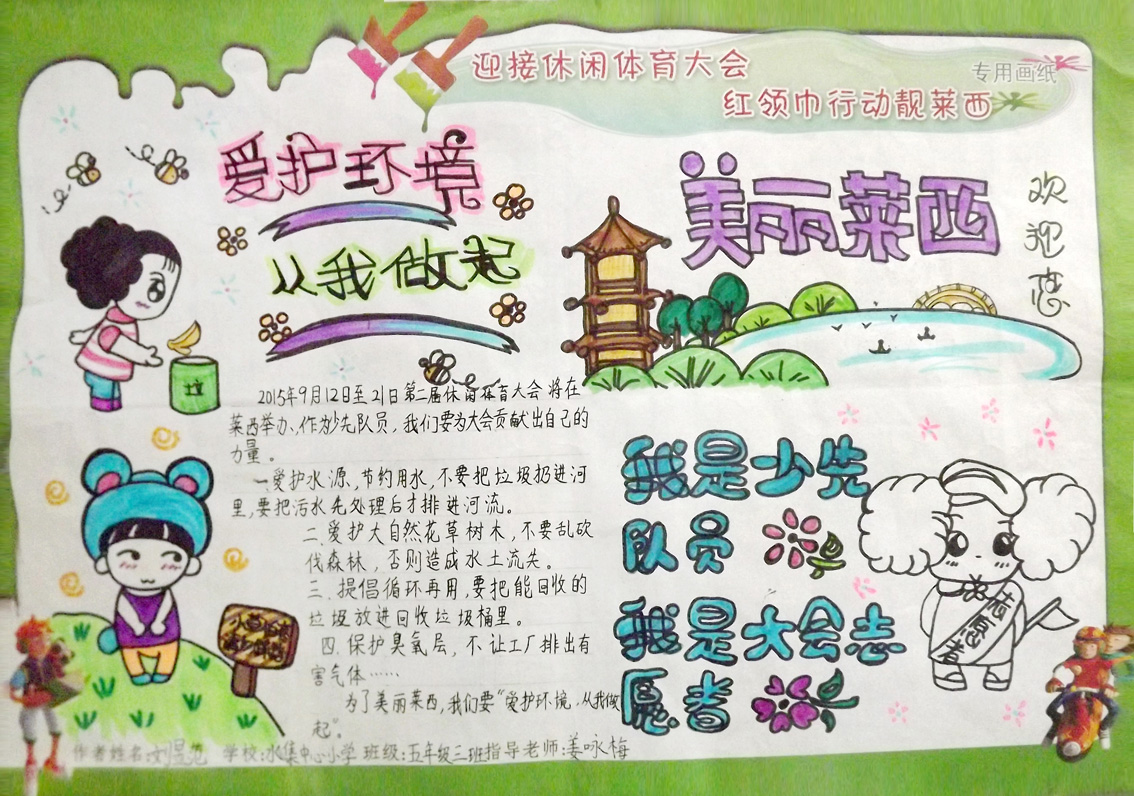 迎接休闲体育大会
专用画纸
红领巾行动靓莱西
爱护环境
从我做起
美丽莱西
欢迎您
2015年9月12日至21日第二届休闲体育大会将在
莱西举办、作为少先队员，我们要为大会贡献出自己的
力量。
一爱护水源，节约用水，不要把垃圾扔进河
里，要把污水先处理后才排进河流。
二.爱护大自然花草树木，不要乱砍
伐森林，否则造成水土流失。
三.提倡循环再用，要把能回收的
垃圾放进回收垃圾桶里。
四.保护臭氧层，不让工厂排出有
害气体……
为了美丽莱西，我们要“爱护环境，从我做
起”。
我是少先
队员
我是大会志
愿者
志愿者
作者姓名:刘昱 学校:水集中心小学 班级:五年级三班指导老师:姜咏梅